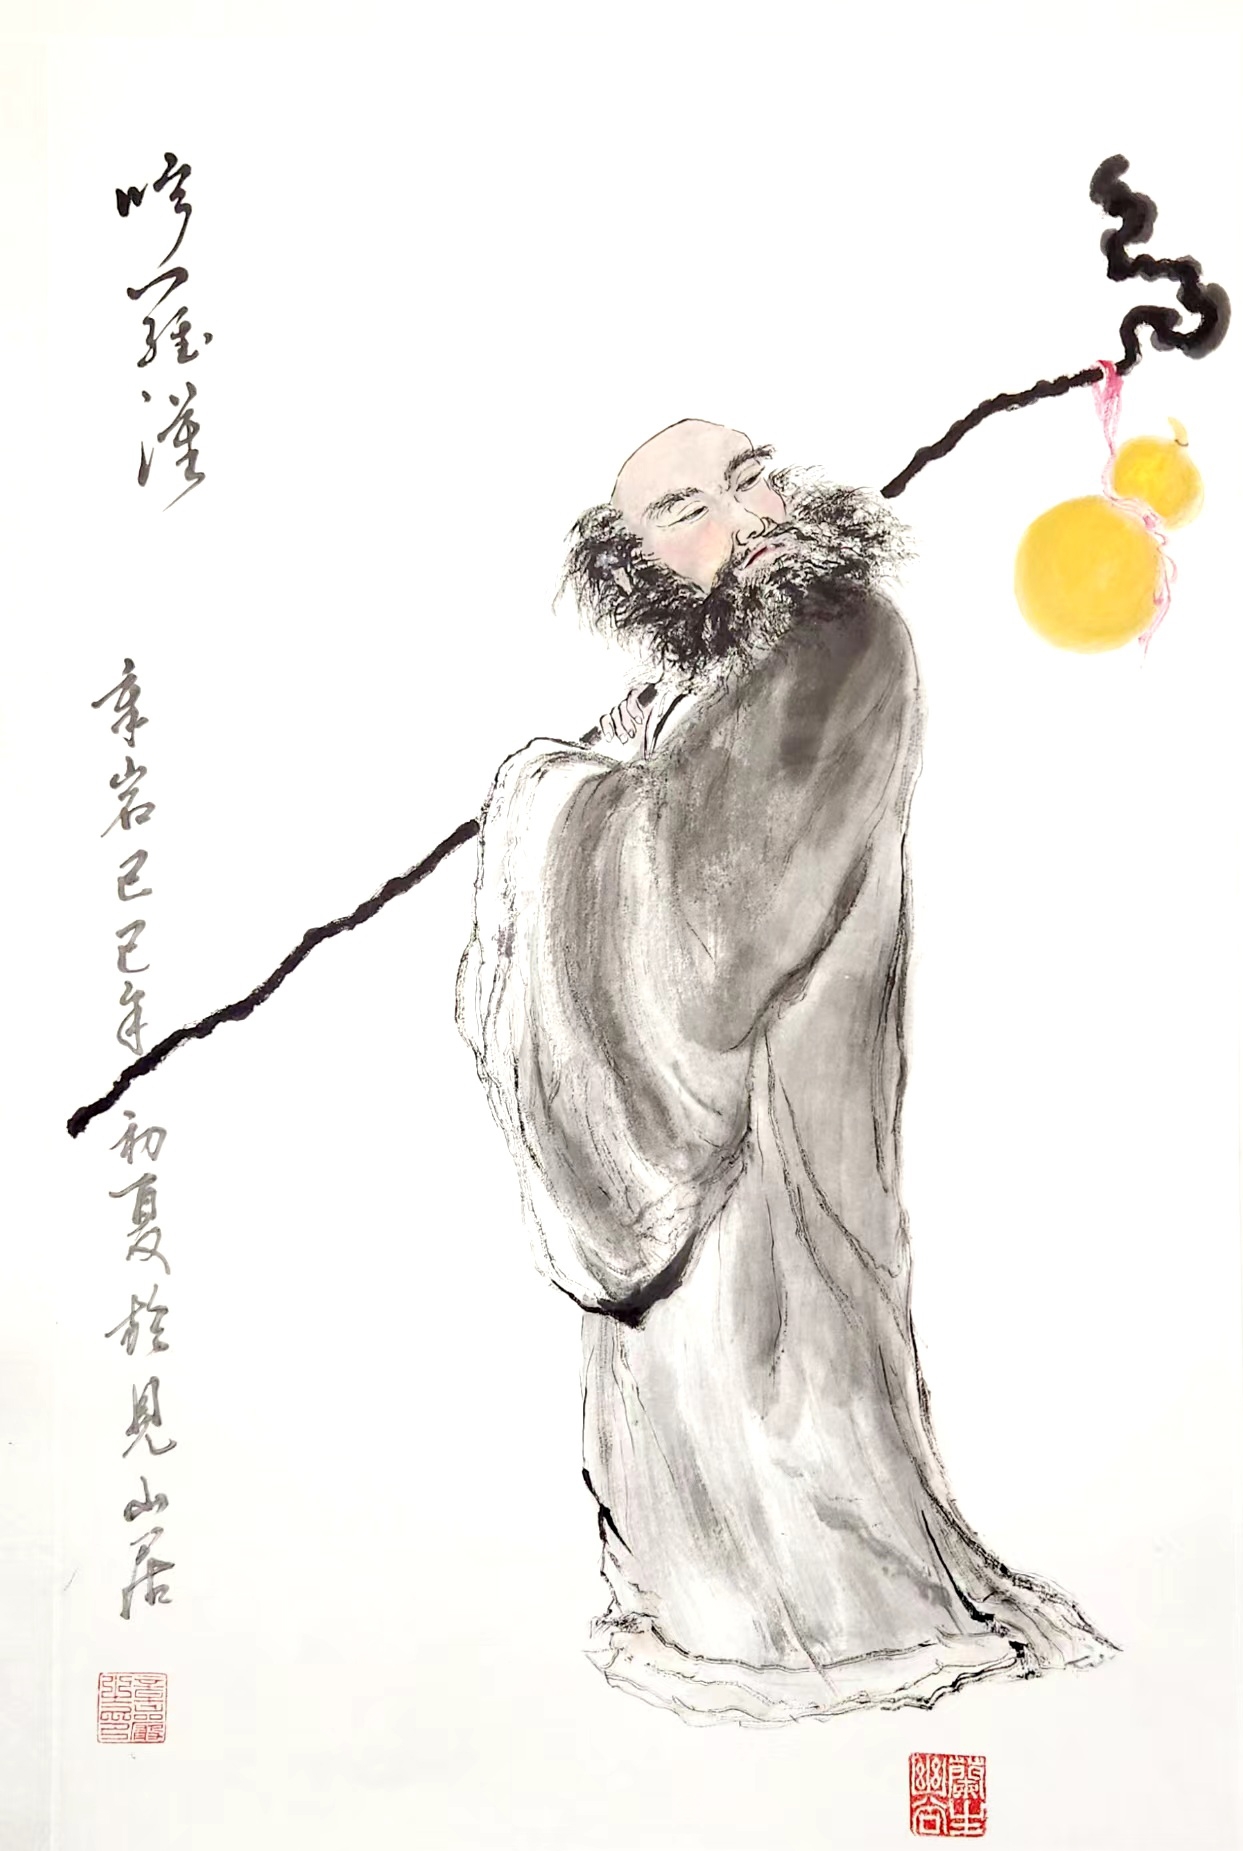 羅漢
章岩己巳年初夏於見山居
蘭生幽谷